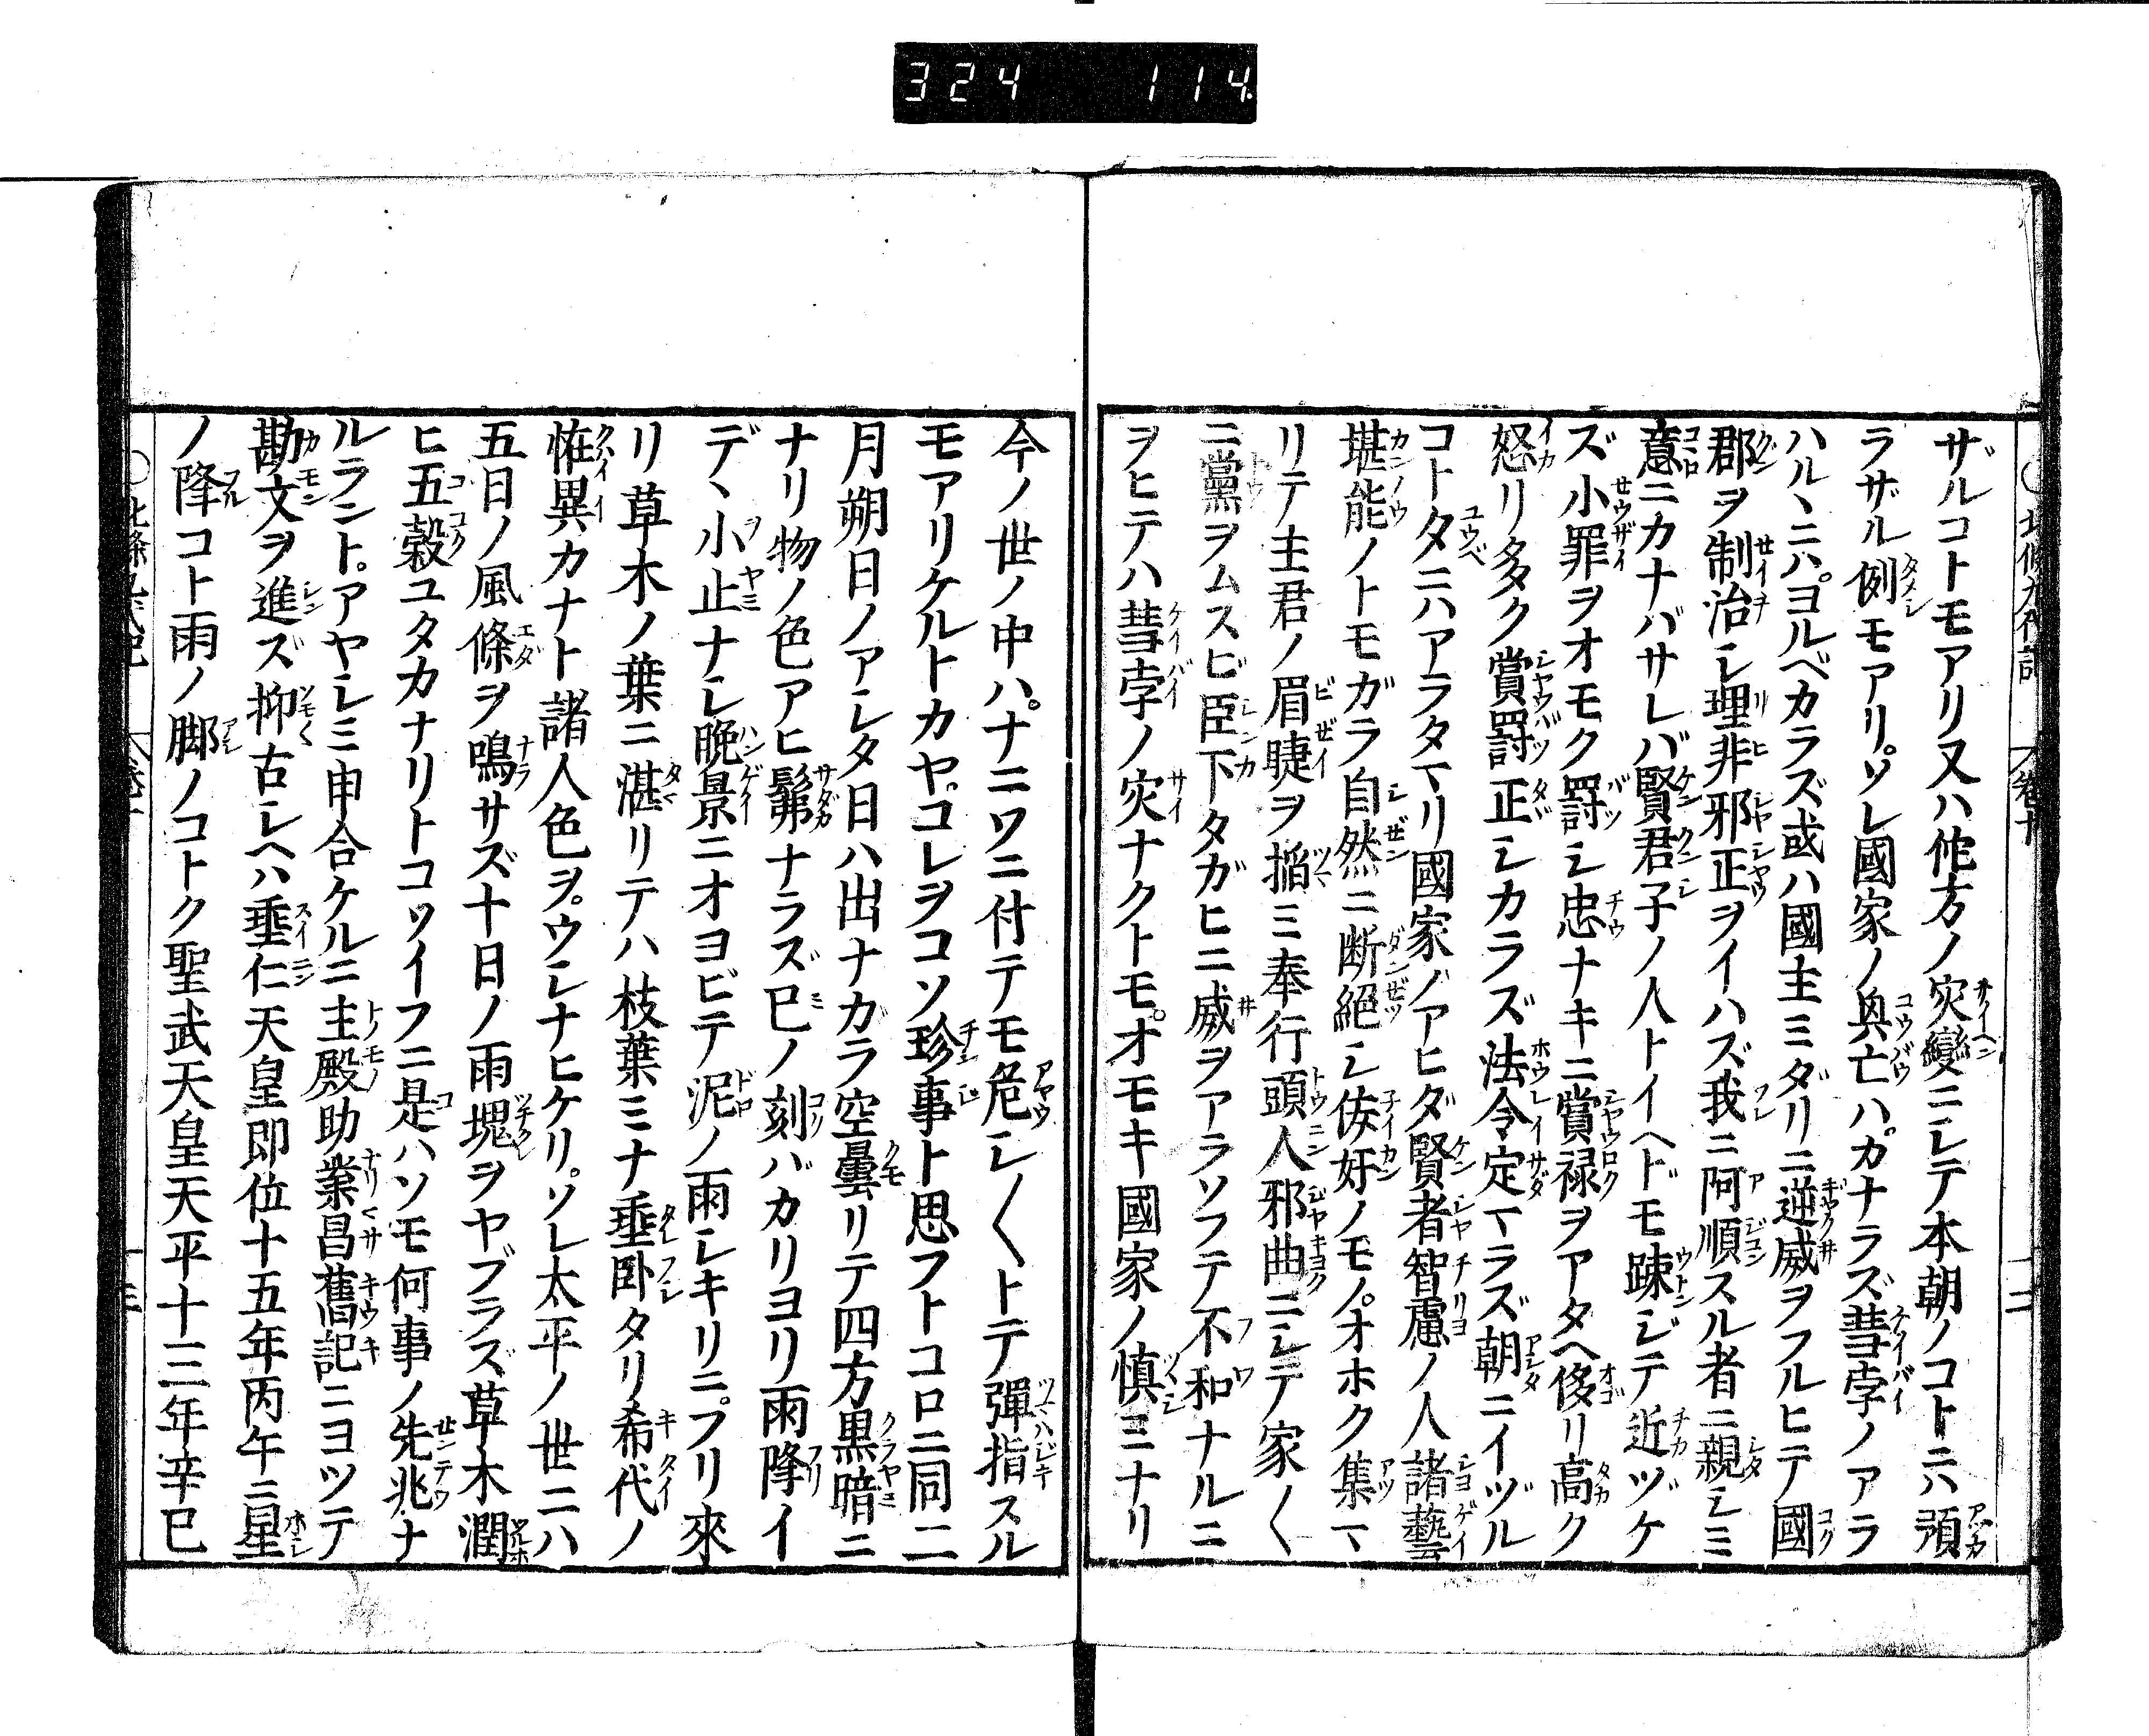 324 114
ザルコトモアリ又ハ他方ノ灾變ニシテ本朝ノコトニハ預
ラザル例モアリ。ソレ國家ノ興亡ハ。カナラズ彗孛ノアラ
ハルヽニハ。ヨルベカラズ或ハ國主ミダリニ逆威ヲフルヒテ國
郡ヲ制治シ理非邪正ヲイハズ我ニ阿順スル者ニ親シミ
意ニカナバサレバ賢君子ノ人トイヘドモ疎ジテ近ヅケ
ズ小罪ヲオモク罸シ忠ナキニ賞禄ヲアタヘ侈リ高ク
怒リ多タク賞罸正シカラズ法令定マラズ朝ニイヅル
コトタニハアラタマリ國家ノアヒダ賢者智慮ノ人諸藝
堪能ノトモガラ自然ニ断絕シ佞奸ノモノ。オホク集マ
リテ主君ノ眉睫ヲ搯ミ奉行頭人邪曲ニシテ家〱
ニ黨ヲムスビ臣下タガヒニ威ヲアラソフテ不和ナルニ
ヲヒテハ彗孛ノ灾ナクトモ。オモキ國家ノ慎ミナリ
今ノ世ノ中ハ。ナニワニ付テモ危シ〱トテ彈指スル
モアリケルトカヤ。コレヲコソ珍事ト思フトコロニ同二
月朔日ノアシタ日ハ出ナガラ空曇リテ四方黒暗ニ
ナリ物ノ色アヒ髴ナラズ巳ノ刻バカリヨリ雨降イ
デヽ小止ナシ晩景ニオヨビテ泥ノ雨シキリニ。フリ來
リ草木ノ葉ニ湛リテハ枝葉ミナ垂卧タリ希代ノ
恠異カナト諸人色ヲ。ウシナヒケリ。ソレ太平ノ世ニハ
五日ノ風條ヲ鳴サズ十日ノ雨塊ヲヤブラズ草木潤
ヒ五穀ユタカナリトコソイフニ是ハソモ何事ノ先兆ナ
ルラント。アヤシミ申合ケルニ主殿助業昌舊記ニヨツテ
勘文ヲ進ズ抑古シヘハ垂仁天皇即位十五年丙午ニ星
ノ降コト雨ノ脚ノコトク聖武天皇天平十三年辛巳